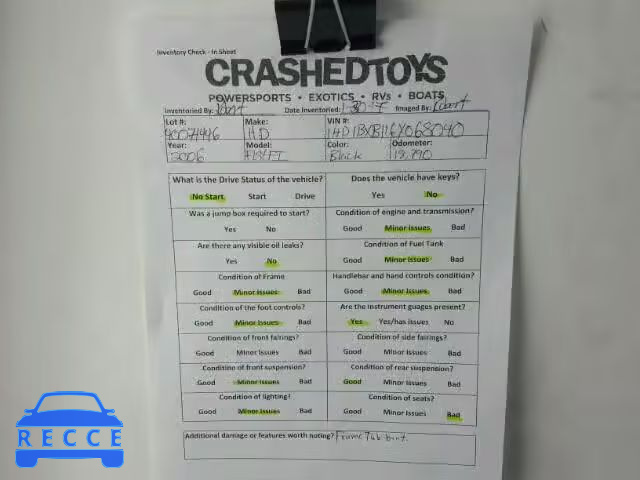 Inventory Check - In Sheet
CRASHEDTOYS
POWERSPORTS • EXOTICS • RVs • BOATS
Inventoried By: Date Inventoried: 1-30-17 Imaged By:
Lot #: Make: VIN #:
40071446 HD 1HD1BXB116Y068040
Year: Model: Color: Odometer:
2006 Black 19,790
What is the Drive Status of the vehicle? Does the vehicle have keys?
No Start Start Drive Yes No
Was a jump box required to start? Condition of engine and transmission?
Yes No Good Minor issues Bad
Are there any visible oil leaks? Condition of Fuel Tank
Yes No Good Minor issues Bad
Condition of Frame Handlebar and hand controls condition?
Good Minor issues Bad Good Minor issues Bad
Condition of the foot controls? Are the instrument guages present?
Good Minor issues Bad Yes Yes/has issues No
Condition of front fairings? Condition of side fairings?
Good Minor issues Bad Good Minor issues Bad
Condition of front suspension? Condition of rear suspension?
Good Minor issues Bad Good Minor issues Bad
Condition of lighting? Condition of seats?
Good Minor issues Bad Good Minor issues Bad
Additional damage or features worth noting? Frame Tab bent.
RECCE